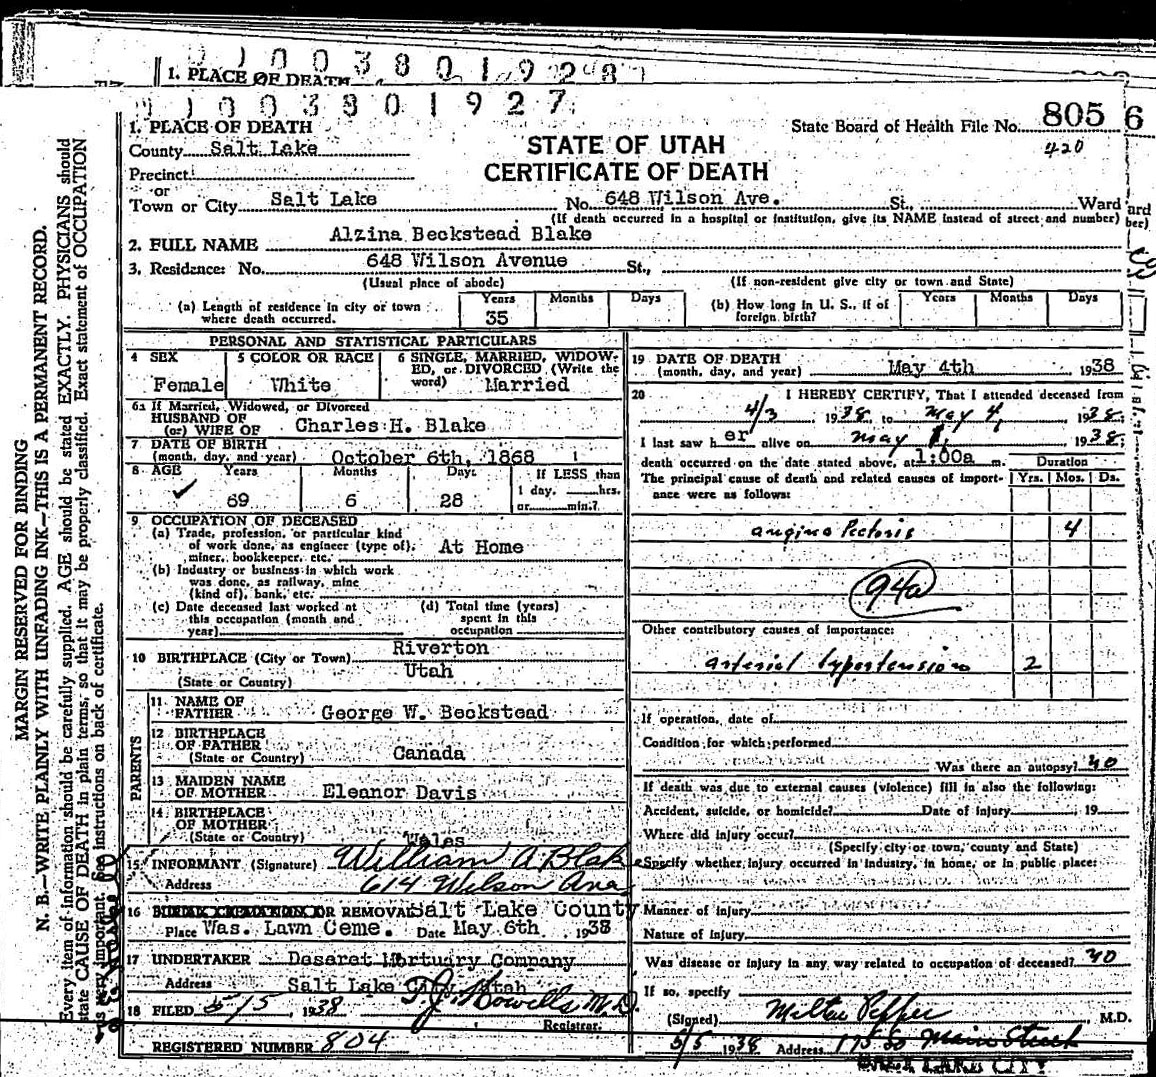 1. PLACE OF DEATH
0 1 0 0 3 8 0 1 9 2 7
State Board of Health File No. 805 6
420
1. PLACE OF DEATH
STATE OF UTAH
CERTIFICATE OF DEATH
County Salt Lake
Precinct
or
Town or City Salt Lake No. 648 Wilson Ave. St., Ward
(If death occurred in a hospital or institution, give its NAME instead of street and number)
2. FULL NAME Alzina Beckstead Blake
3. Residence: No. 648 Wilson Avenue St.,
(Usual place of abode) (If non-resident give city or town and State)
(a) Length of residence in city or town where death occurred. Years 35 Months Days
(b) How long in U. S., if of foreign birth? Years Months Days
PERSONAL AND STATISTICAL PARTICULARS
4 SEX Female
5 COLOR OR RACE White
6 SINGLE, MARRIED, WIDOWED, or DIVORCED (Write the word) Married
6a If Married, Widowed, or Divorced
HUSBAND OF
(or) WIFE OF Charles H. Blake
7 DATE OF BIRTH
(month, day, and year) October 6th, 1868
8 AGE Years 69 Months 6 Days 28
If LESS than 1 day, hrs. or min.?
9 OCCUPATION OF DECEASED
(a) Trade, profession, or particular kind
of work done, as engineer (type of), At Home
miner, bookkeeper, etc.
(b) Industry or business in which work
was done, as railway, mine
(kind of), bank, etc.
(c) Date deceased last worked at this occupation (month and year)
(d) Total time (years) spent in this occupation
10 BIRTHPLACE (City or Town) Riverton
Utah
(State or Country)
PARENTS
11 NAME OF FATHER George W. Beckstead
12 BIRTHPLACE OF FATHER
(State or Country) Canada
13 MAIDEN NAME OF MOTHER Eleanor Davis
14 BIRTHPLACE OF MOTHER
(State or Country) Wales
15 INFORMANT (Signature) William A Blake
Address 614 Wilson Ave
16 BURIAL CREMATION OR REMOVAL Salt Lake County
Place Was. Lawn Ceme. Date May 6th 1938
17 UNDERTAKER Deseret Mortuary Company
Address Salt Lake City, Utah
18 FILED 5/5, 1938 T.J. Howells M.D.
Registrar.
REGISTERED NUMBER 804
19 DATE OF DEATH
(month, day, and year) May 4th 1938
20 I HEREBY CERTIFY, That I attended deceased from
4/3 1938, to May 4, 1938,
I last saw her alive on May 1, 1938,
death occurred on the date stated above, at 1:00a m.
Duration
The principal cause of death and related causes of importance were as follows: Yrs. Mos. Ds.
angina Pectoris 4
94a
Other contributory causes of importance:
arterial hypertension 2
If operation, date of
Condition for which performed
Was there an autopsy? no
If death was due to external causes (violence) fill in also the following:
Accident, suicide, or homicide? Date of injury 19
Where did injury occur?
(Specify city or town, county and State)
Specify whether injury occurred in industry, in home, or in public place:
Manner of injury
Nature of injury
Was disease or injury in any way related to occupation of deceased? no
If so, specify
(Signed) Milton Pepper M.D.
5/5 1938 Address 175 So Main Street
SALT LAKE CITY
MARGIN RESERVED FOR BINDING
N. B.—WRITE PLAINLY WITH UNFADING INK—THIS IS A PERMANENT RECORD.
Every item of information should be carefully supplied. AGE should be stated EXACTLY. PHYSICIANS should
state CAUSE OF DEATH in plain terms, so that it may be properly classified. Exact statement of OCCUPATION
is very important. See instructions on back of certificate.